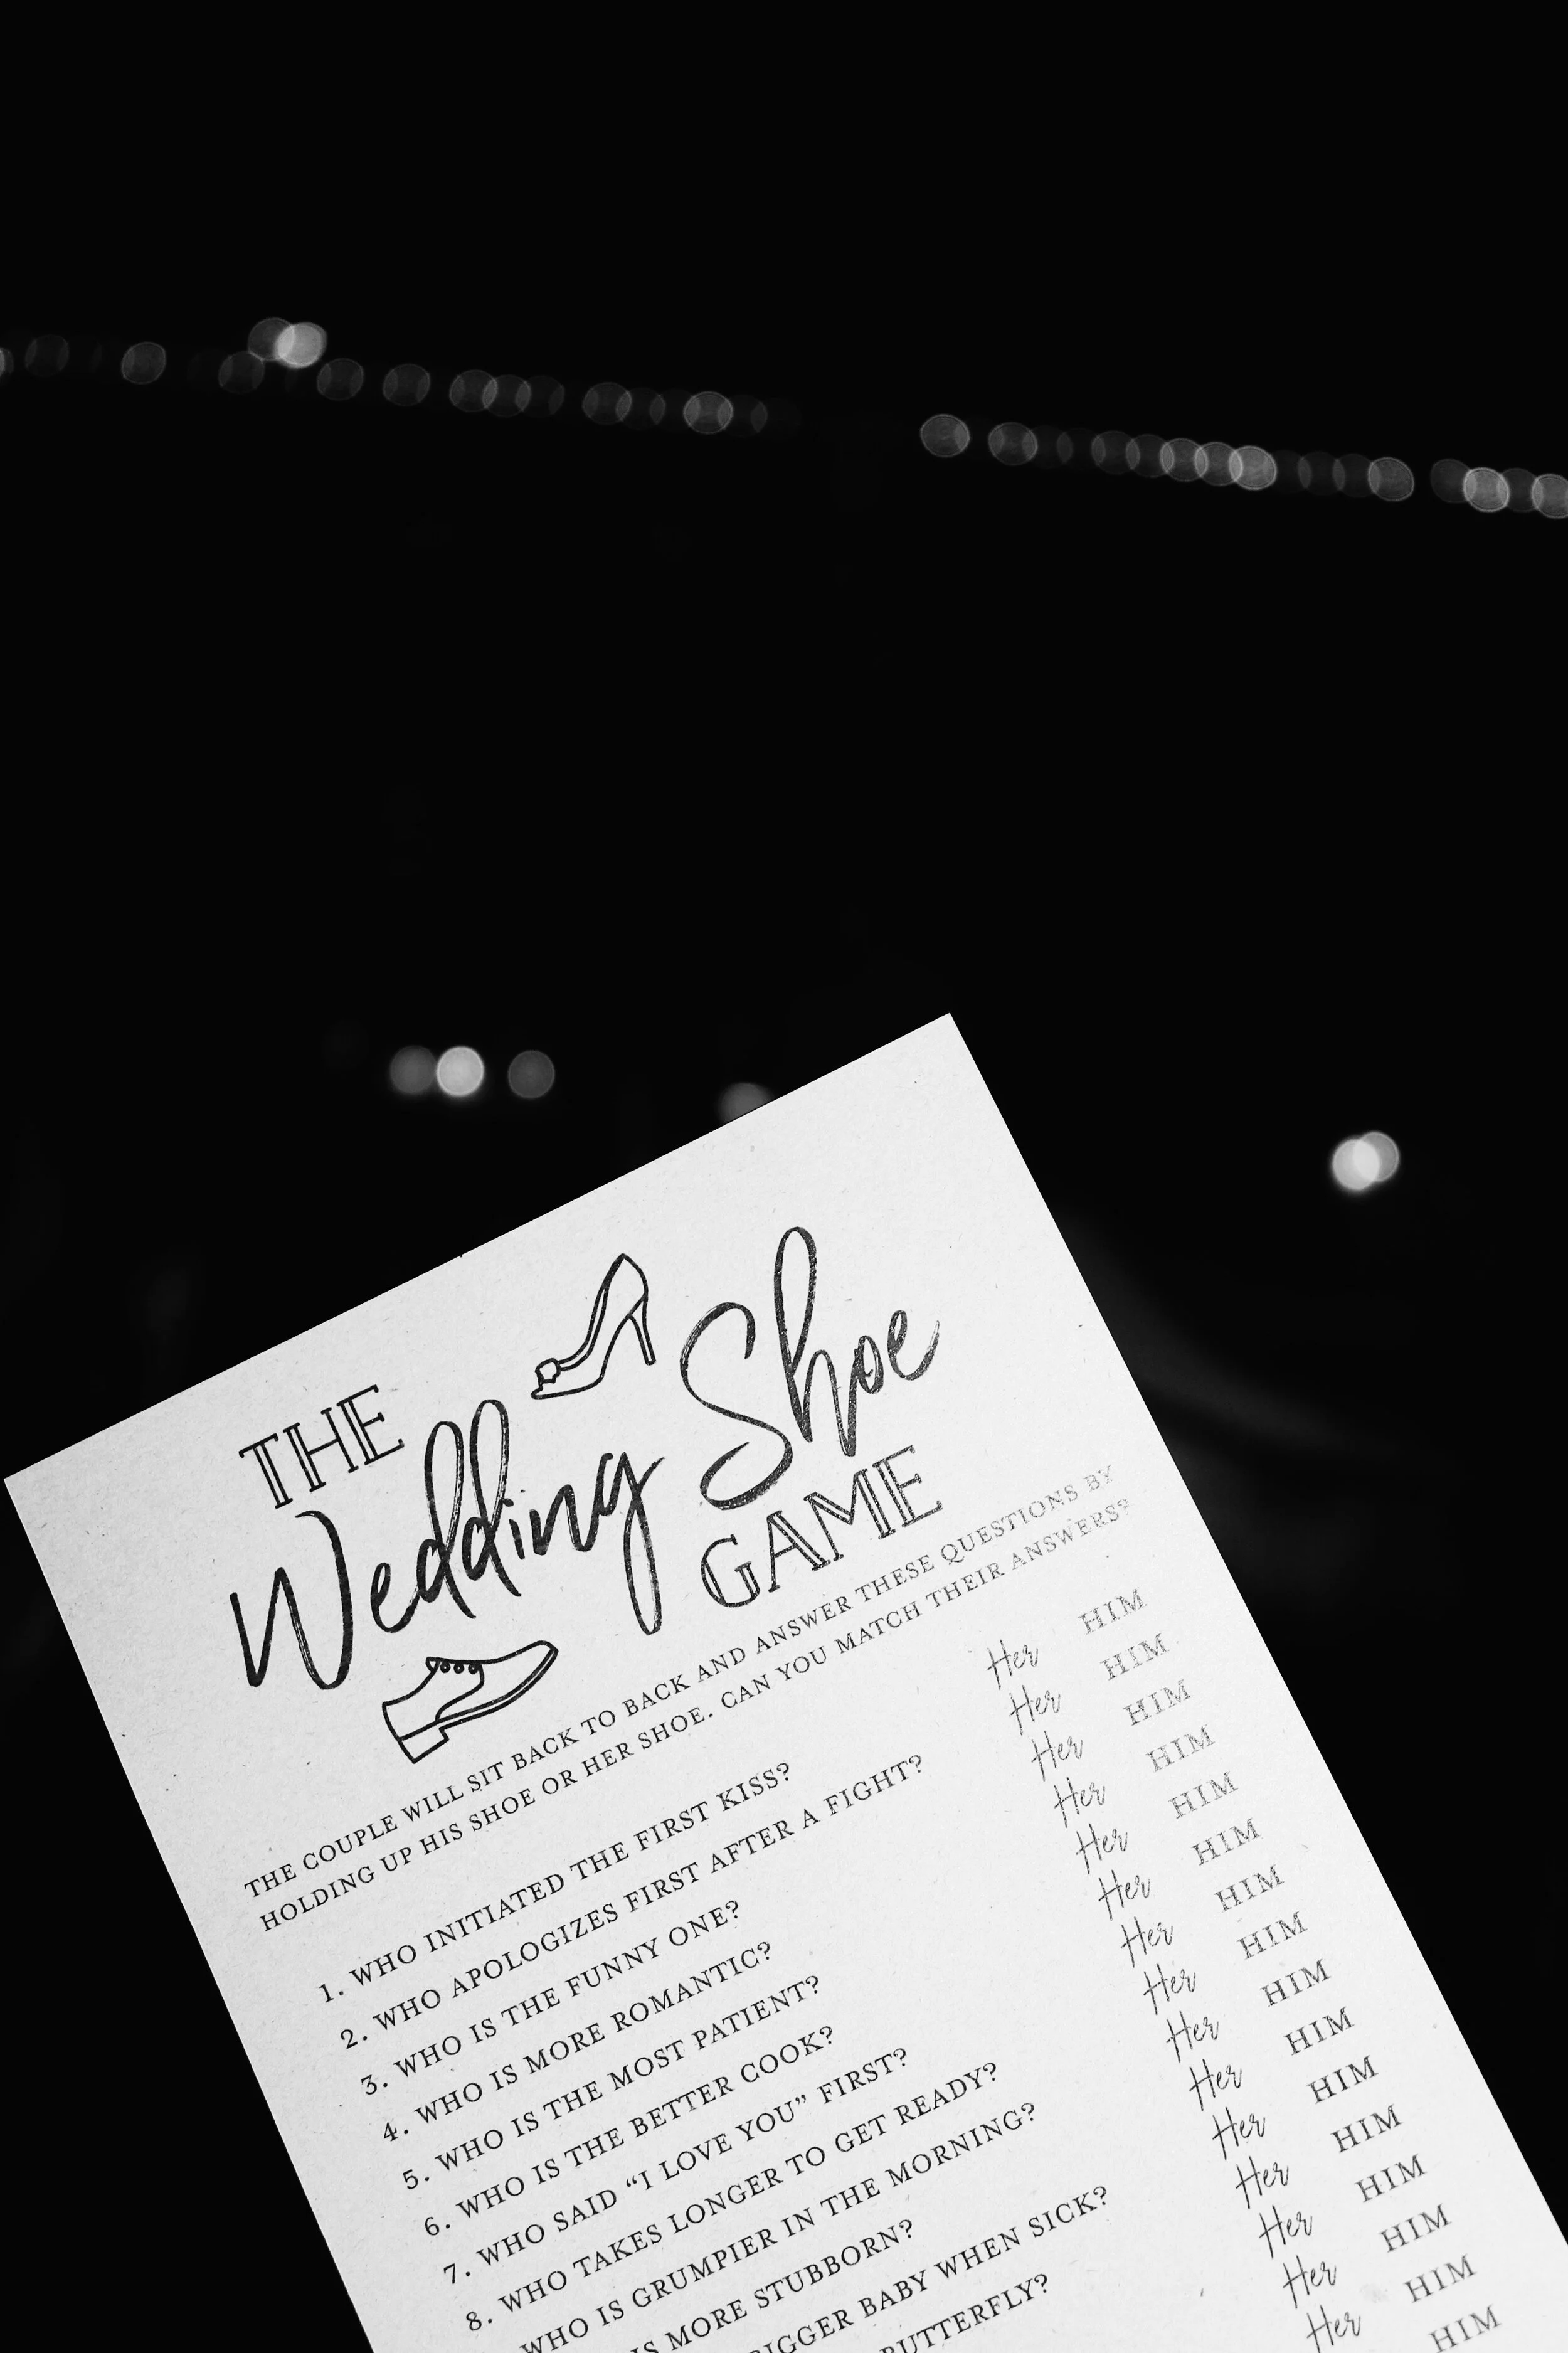 THE
Wedding Shoe
GAME
THE COUPLE WILL SIT BACK TO BACK AND ANSWER THESE QUESTIONS BY
HOLDING UP HIS SHOE OR HER SHOE. CAN YOU MATCH THEIR ANSWERS?
1. WHO INITIATED THE FIRST KISS? Her HIM
2. WHO APOLOGIZES FIRST AFTER A FIGHT? Her HIM
3. WHO IS THE FUNNY ONE? Her HIM
4. WHO IS MORE ROMANTIC? Her HIM
5. WHO IS THE MOST PATIENT? Her HIM
6. WHO IS THE BETTER COOK? Her HIM
7. WHO SAID “I LOVE YOU” FIRST? Her HIM
8. WHO TAKES LONGER TO GET READY? Her HIM
WHO IS GRUMPIER IN THE MORNING? Her HIM
IS MORE STUBBORN? Her HIM
BIGGER BABY WHEN SICK? Her HIM
BUTTERFLY? Her HIM
Her HIM
Her HIM
Her HIM
HIM